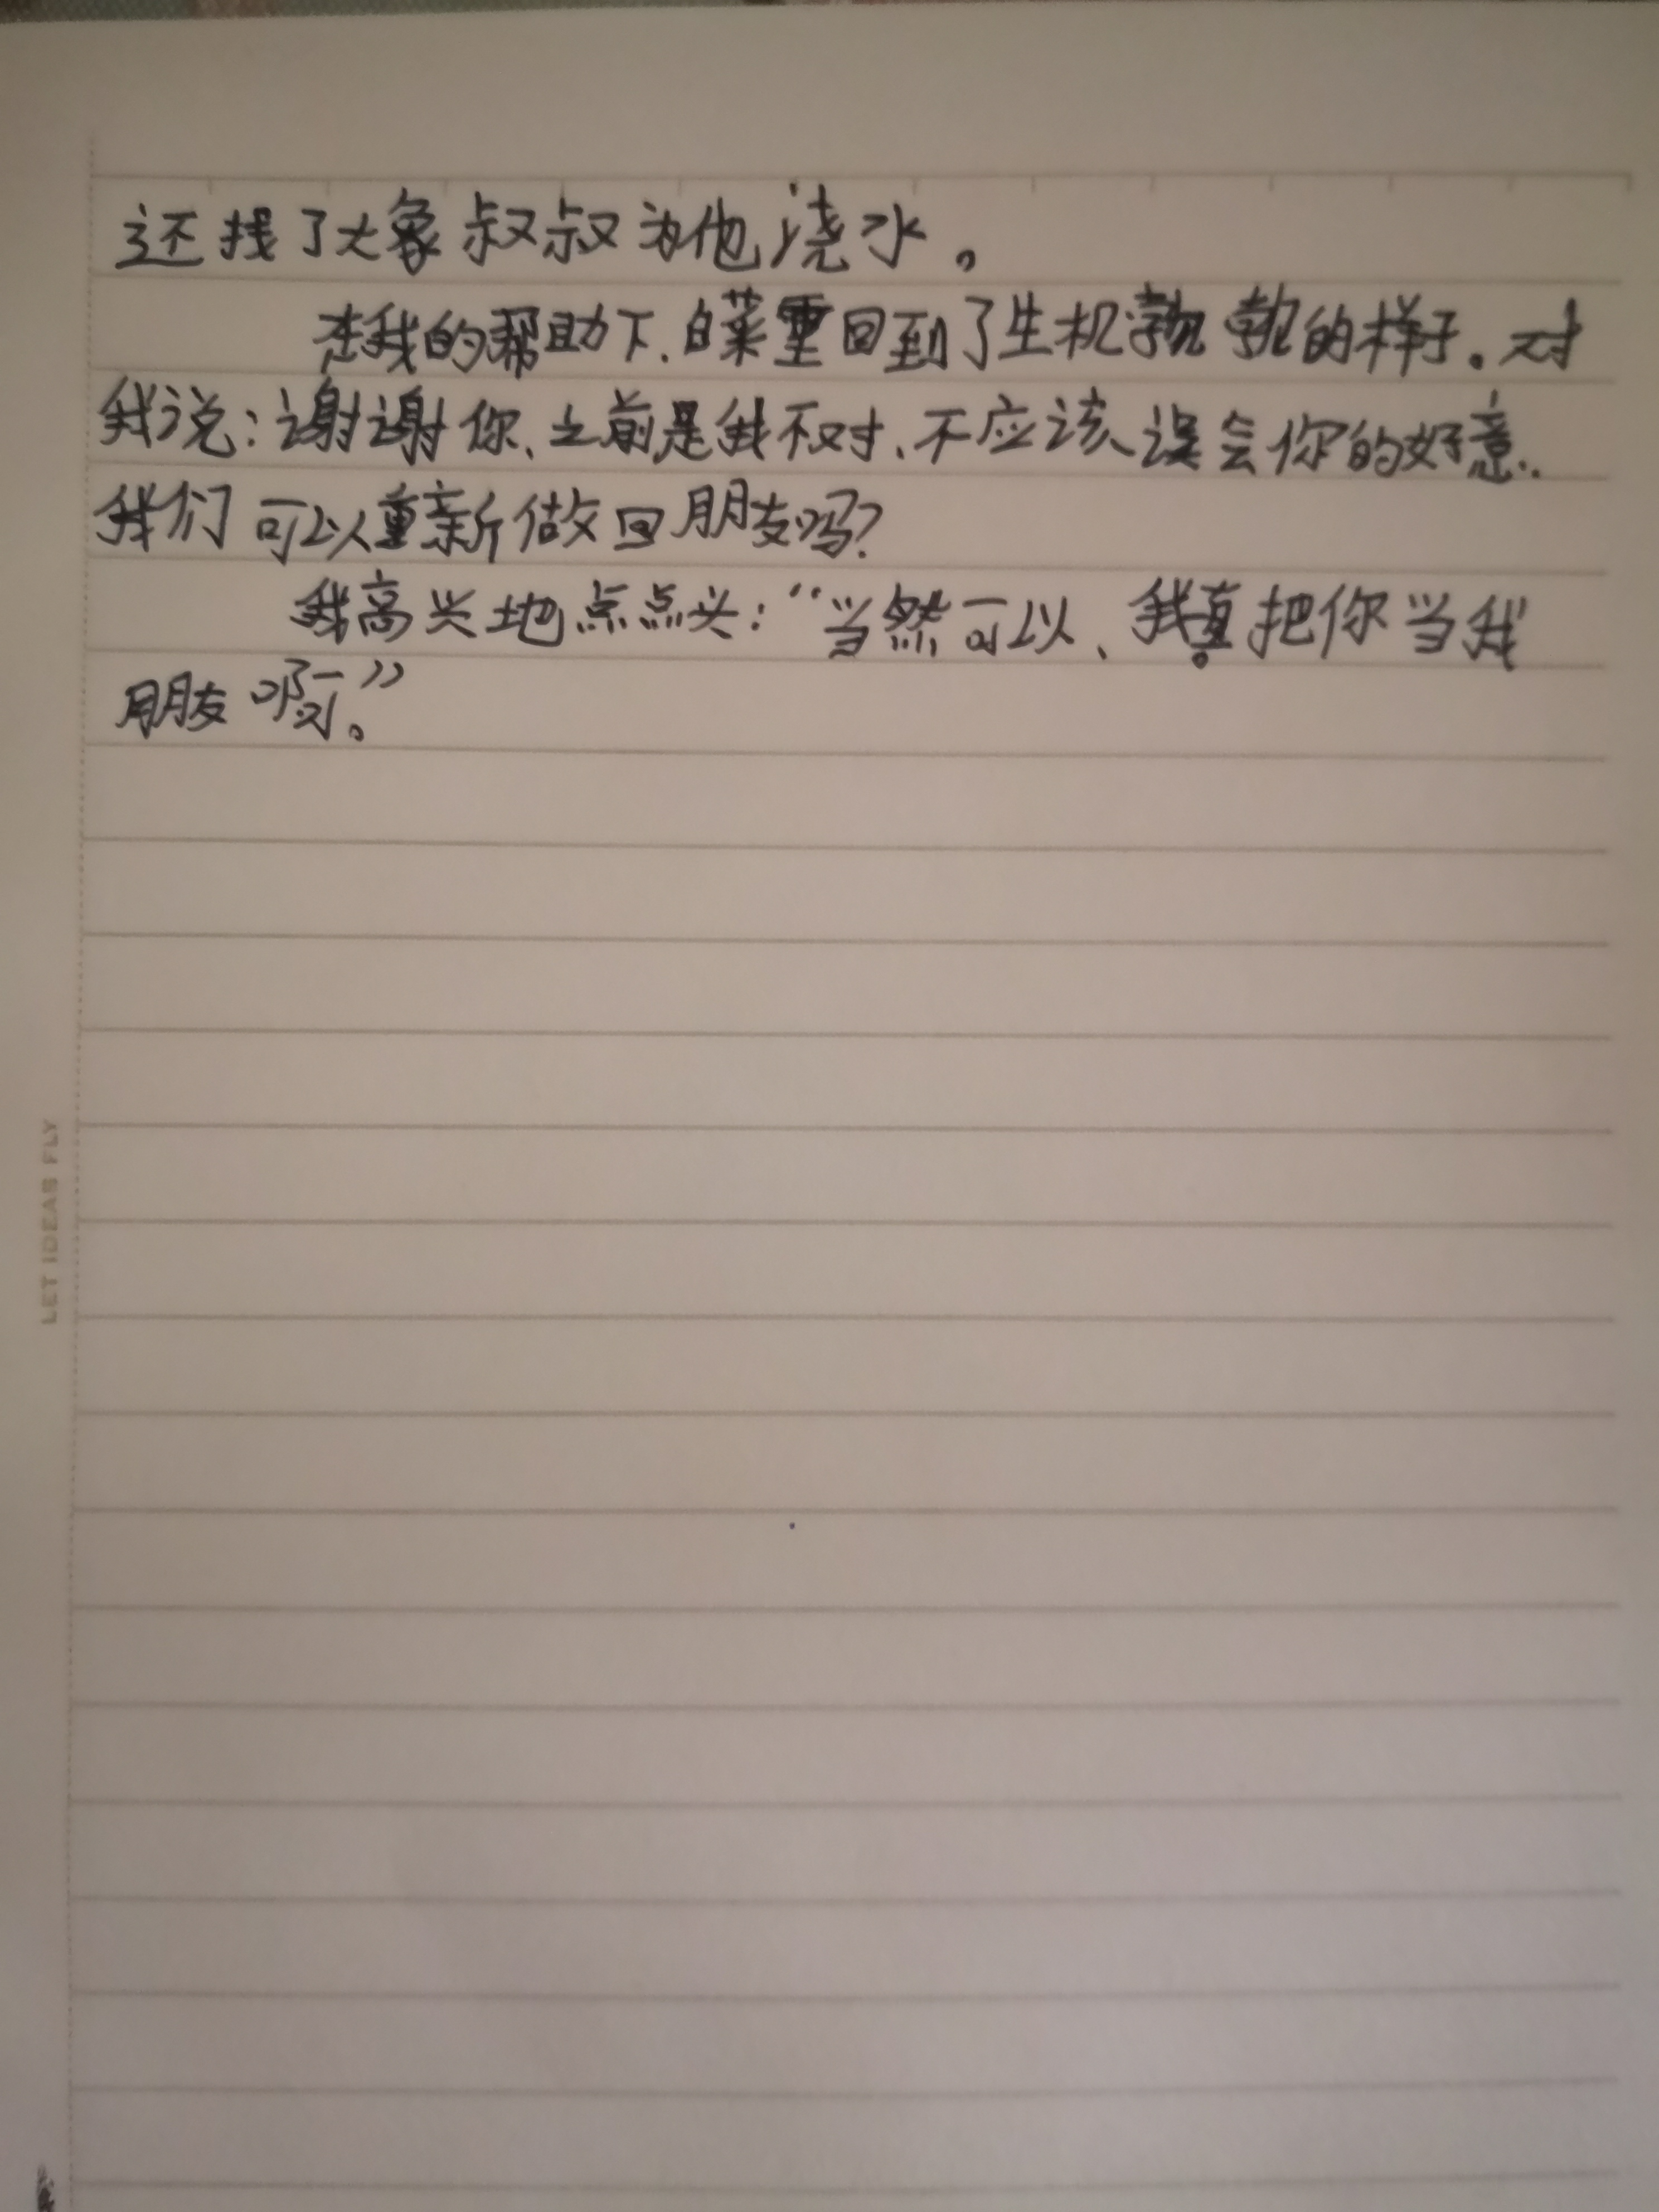 还找了大象叔叔为他浇水。
在我的帮助下,白菜重回到了生机勃勃的样子。对
我说:谢谢你、之前是我不对、不应该误会你的好意.
我们可以重新做回朋友吗?
我高兴地点点头:“当然可以、我直把你当我
朋友啊。”
LET IDEAS FLY